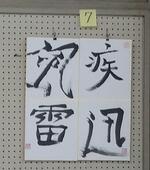 7
疾風
迅雷